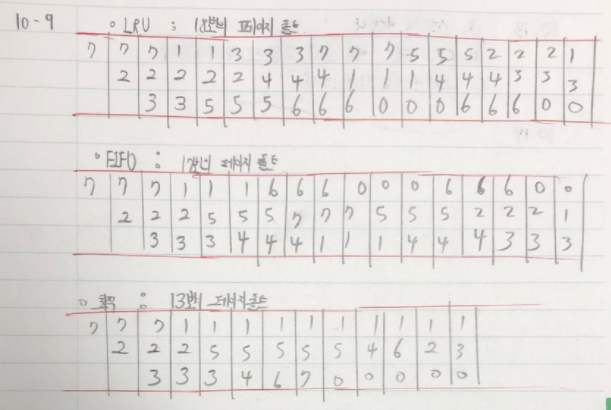 10-9
◦ LRU : 18번의 페이지 폴트
7 7 7 1 1 3 3 3 7 7 7 5 5 5 2 2 2 1
2 2 2 2 2 4 4 4 1 1 1 4 4 4 3 3 3
3 3 5 5 5 6 6 6 0 0 0 6 6 6 0 0
◦ FIFO : 17번의 페이지 폴트
7 7 7 1 1 1 6 6 6 0 0 0 6 6 6 0 0
2 2 2 5 5 5 7 7 7 5 5 5 2 2 2 1
3 3 3 4 4 4 1 1 1 4 4 4 3 3 3
◦ 최적 : 13번의 페이지 폴트
7 7 7 1 1 1 1 1 1 1 1 1 1
2 2 2 5 5 5 5 5 4 6 2 3
3 3 3 4 6 7 0 0 0 0 0